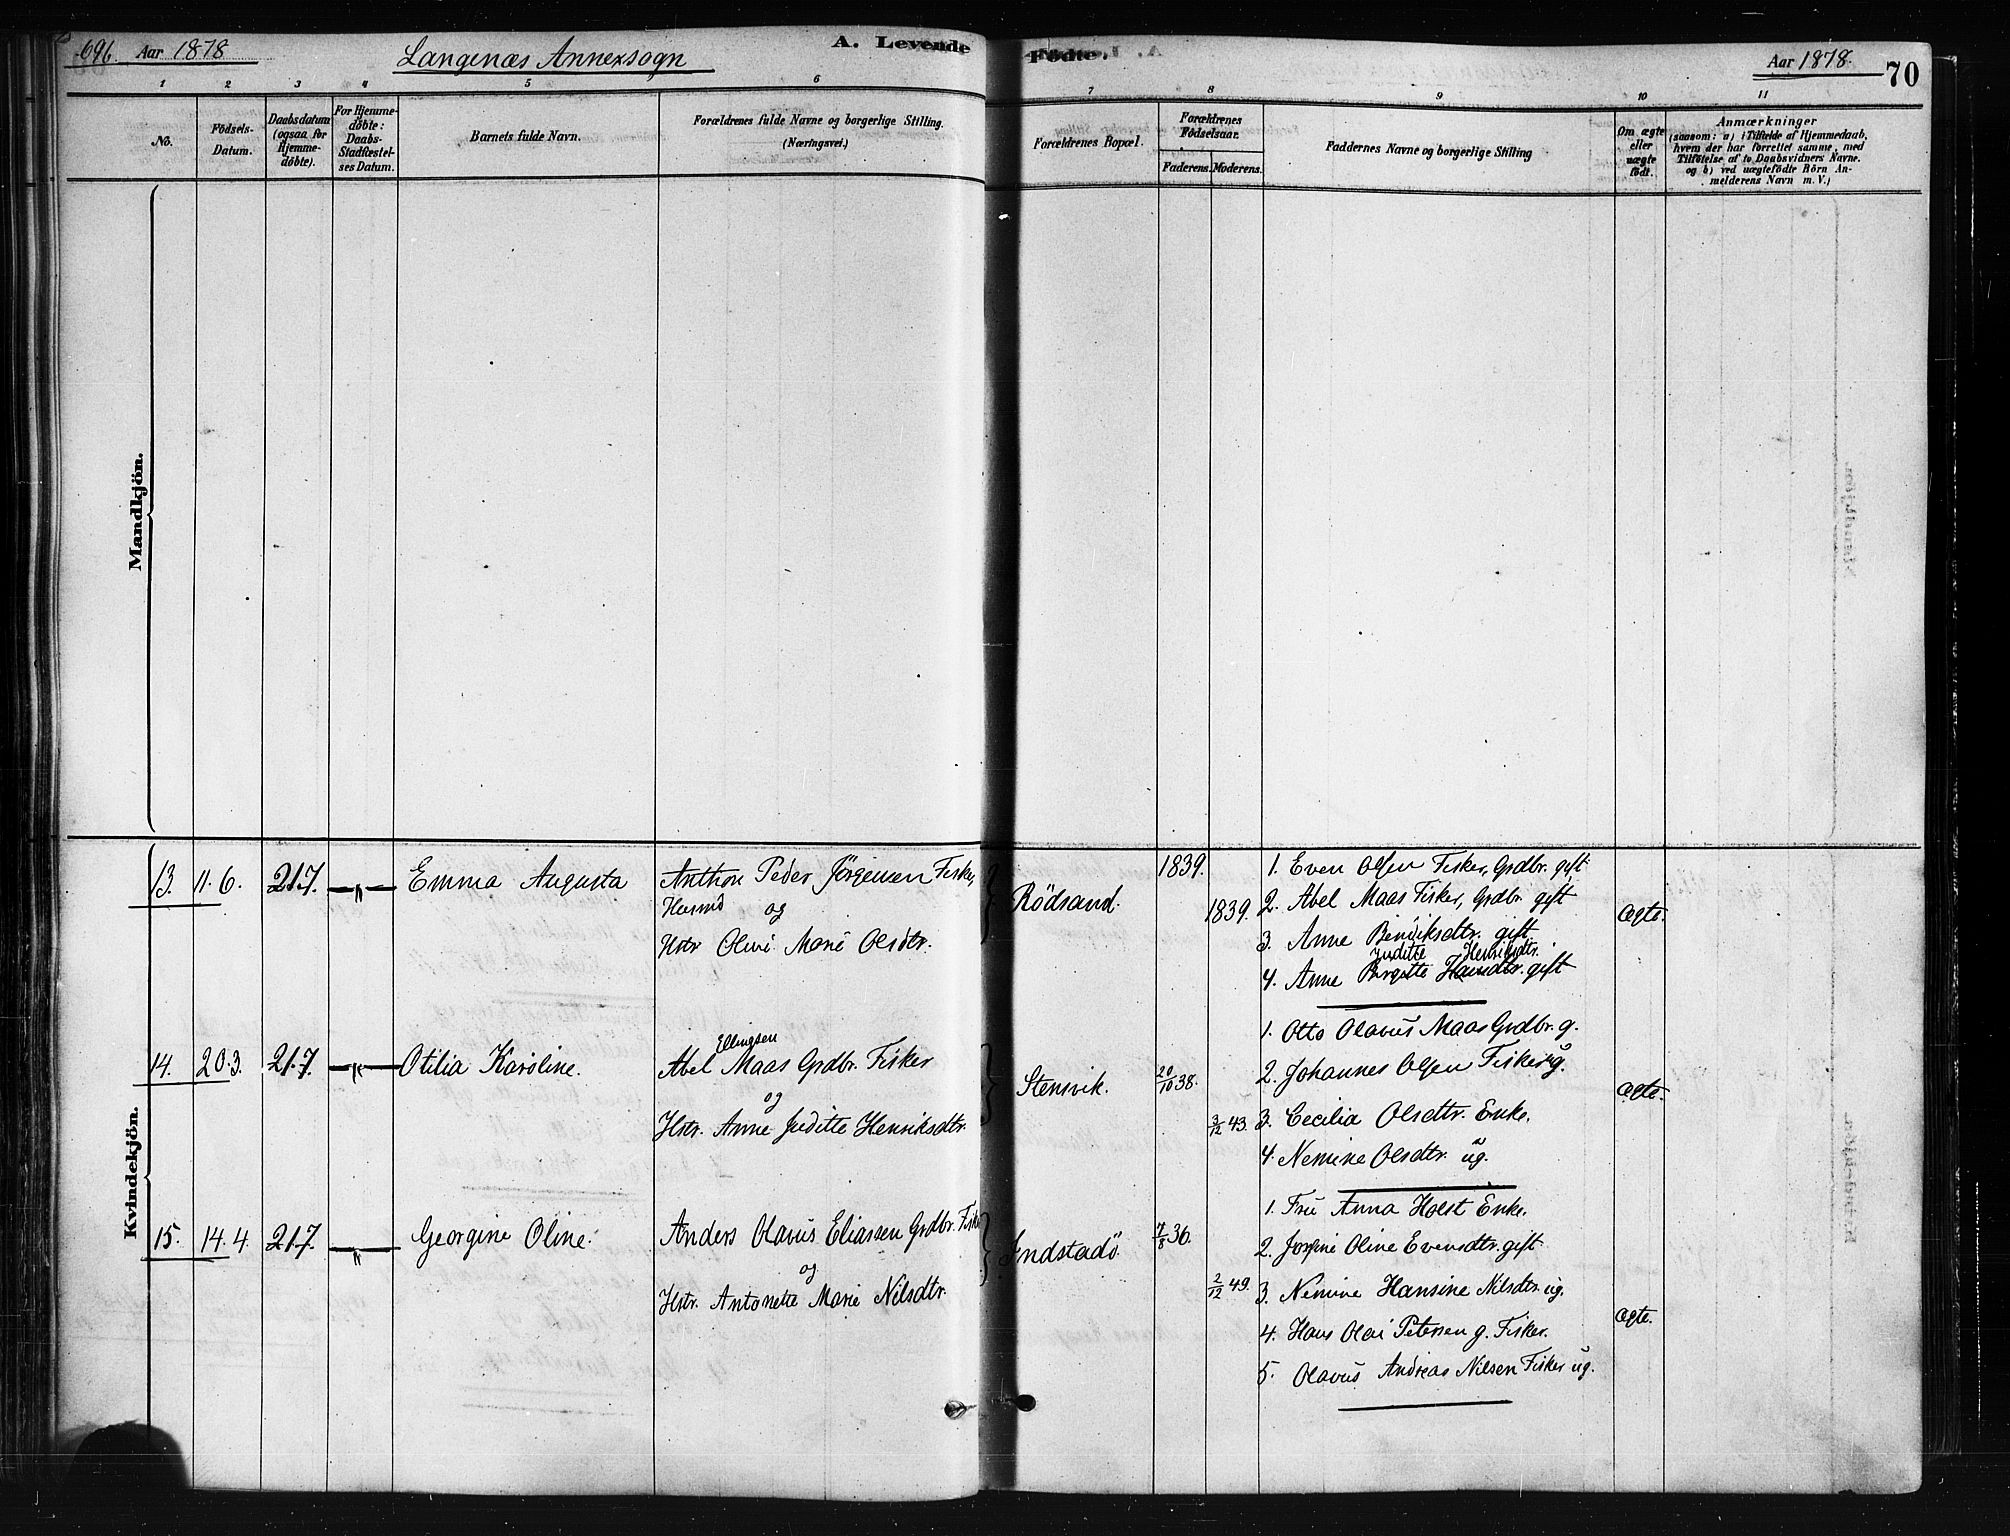 696. Aar 1878
Langenæs Annexsogn
A. Levende Fødte.
Aar 1878.
70
1 2 3 4 5 6 7 8 9 10 11
No.
Födsels-Datum.
Daabsdatum (ogsaa for Hjemme-döbte).
For Hjemme-döbte: Daabs-Stadfæstel-ses Datum.
Barnets fulde Navn.
Forældrenes fulde Navne og borgerlige Stilling.
(Næringsvei.)
Forældrenes Bopæl.
Forældrenes Födselsaar.
Faderens. Moderens.
Faddernes Navne og borgerlige Stilling
Om ægte eller uægte födt.
Anmærkninger
(saasom: a) i Tilfælde af Hjemmedaab,
hvem der har forrettet samme, med
Tilföielse af to Daabsvidners Navne.
og b) ved uægtefödte Börn An-
melderens Navn m. V.)
Mandkjön.
Kvindekjön.
13. 11.6. 21.7. —"— Emma Augusta
Anthon Peder Jörgensen Fisker,
Husmd og
Hstr Oline Marie Olsdtr.
Rödsand.
1839.
1839.
1. Even Olsen Fisker, Grdbr. gift
2. Abel Maas Fisker, Grdbr. gift
3. Anne Bendiksdtr. gift
Juditte Henriksdtr.
4. Anne Birgitte Hansdtr. gift
Ægte.
14. 20.3. 21.7. —"— Otilia Karoline.
Ellingsen
Abel Maas Grdbr. Fisker
og
Hstr. Anne Juditte Henriksdtr.
Stensvik.
20/10 38.
3/12 43.
1. Otto Olavus Maas Grdbr. g.
2. Johannes Olsen Fisker ug.
3. Cecilia Olsdtr. Enke.
4. Nemine Olsdtr. ug.
Ægte.
15. 14.4. 21.7. —"— Georgine Oline.
Anders Olavus Eliassen Grdbr. Fisker
og
Hstr. Antonette Marie Nilsdtr.
Indstadö.
7/8 36.
2/12 49.
1. Fru Anna Holst Enke.
2. Josefine Oline Evensdtr. gift
3. Nemine Hansine Nilsdtr. ug.
4. Hans Olai Petersen g. Fisker.
5. Olavus Andreas Nilsen Fisker ug.
Ægte.